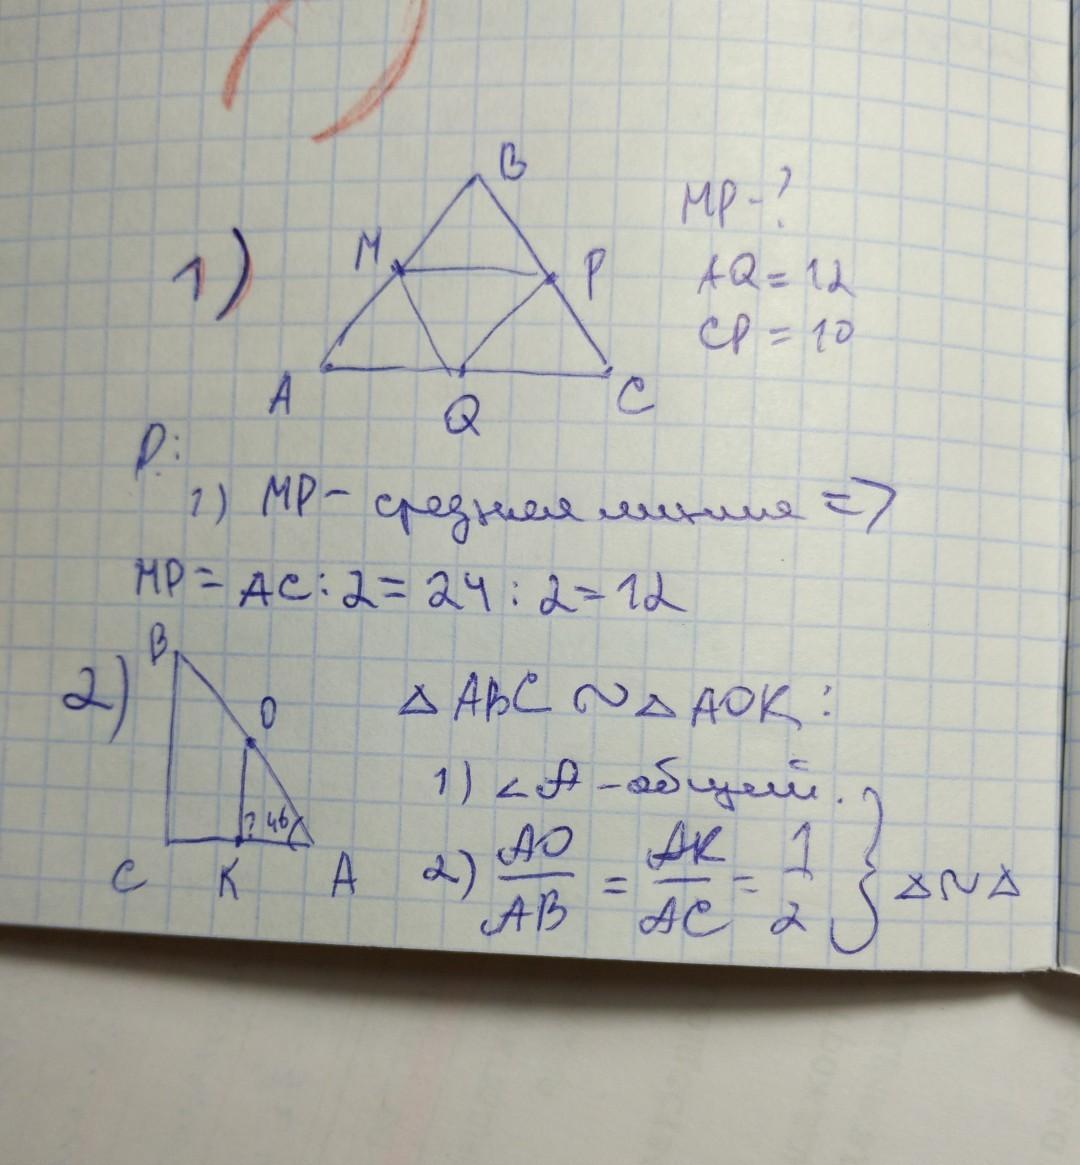 1)
B
M
P
A
Q
C
MP-?
AQ = 12
CP = 10
Р:
1) MP - средняя линия =>
MP = AC : 2 = 24 : 2 = 12
2)
B
O
? 46
C K A
△ ABC ~ △ AOK :
1) ∠A - общий.
2) AO/AB = AK/AC = 1/2 } △ ~ △